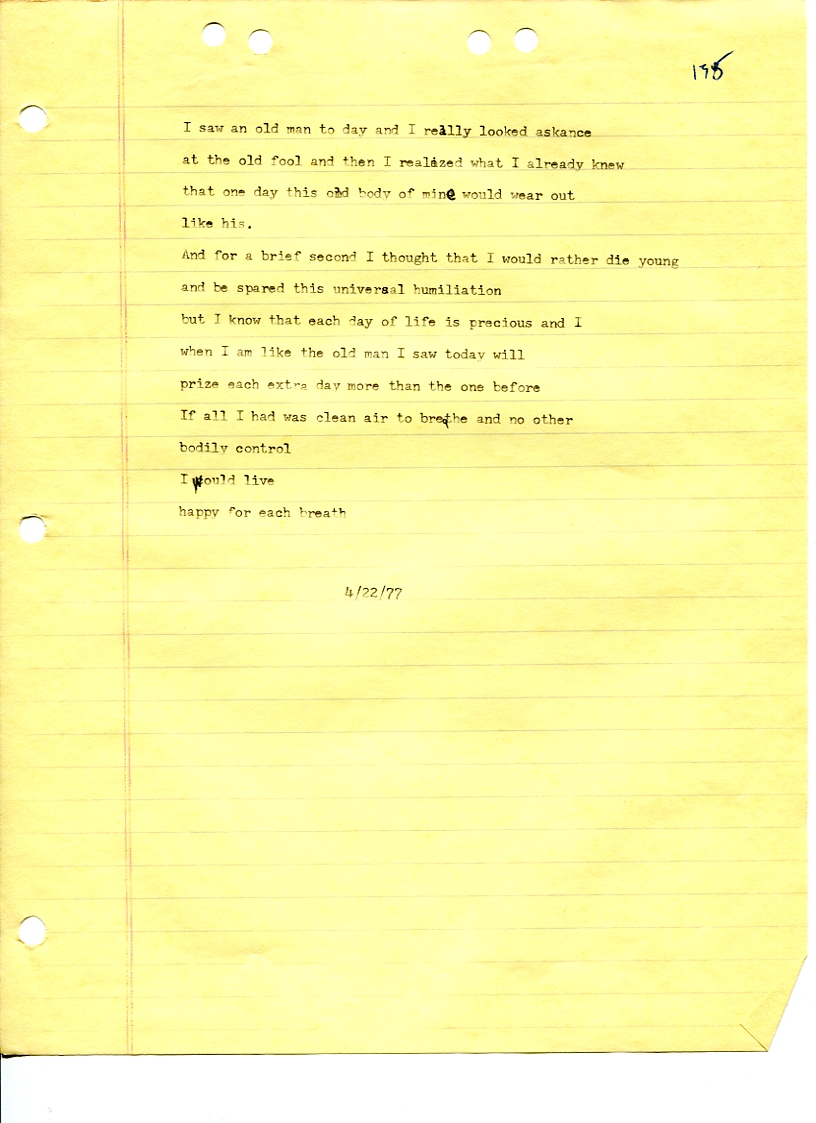 195
I saw an old man to day and I really looked askance
at the old fool and then I realized what I already knew
that one day this old body of mine would wear out
like his.
And for a brief second I thought that I would rather die young
and be spared this universal humiliation
but I know that each day of life is precious and I
when I am like the old man I saw today will
prize each extra day more than the one before
If all I had was clean air to brethe and no other
bodily control
I would live
happy for each breath
4/22/77